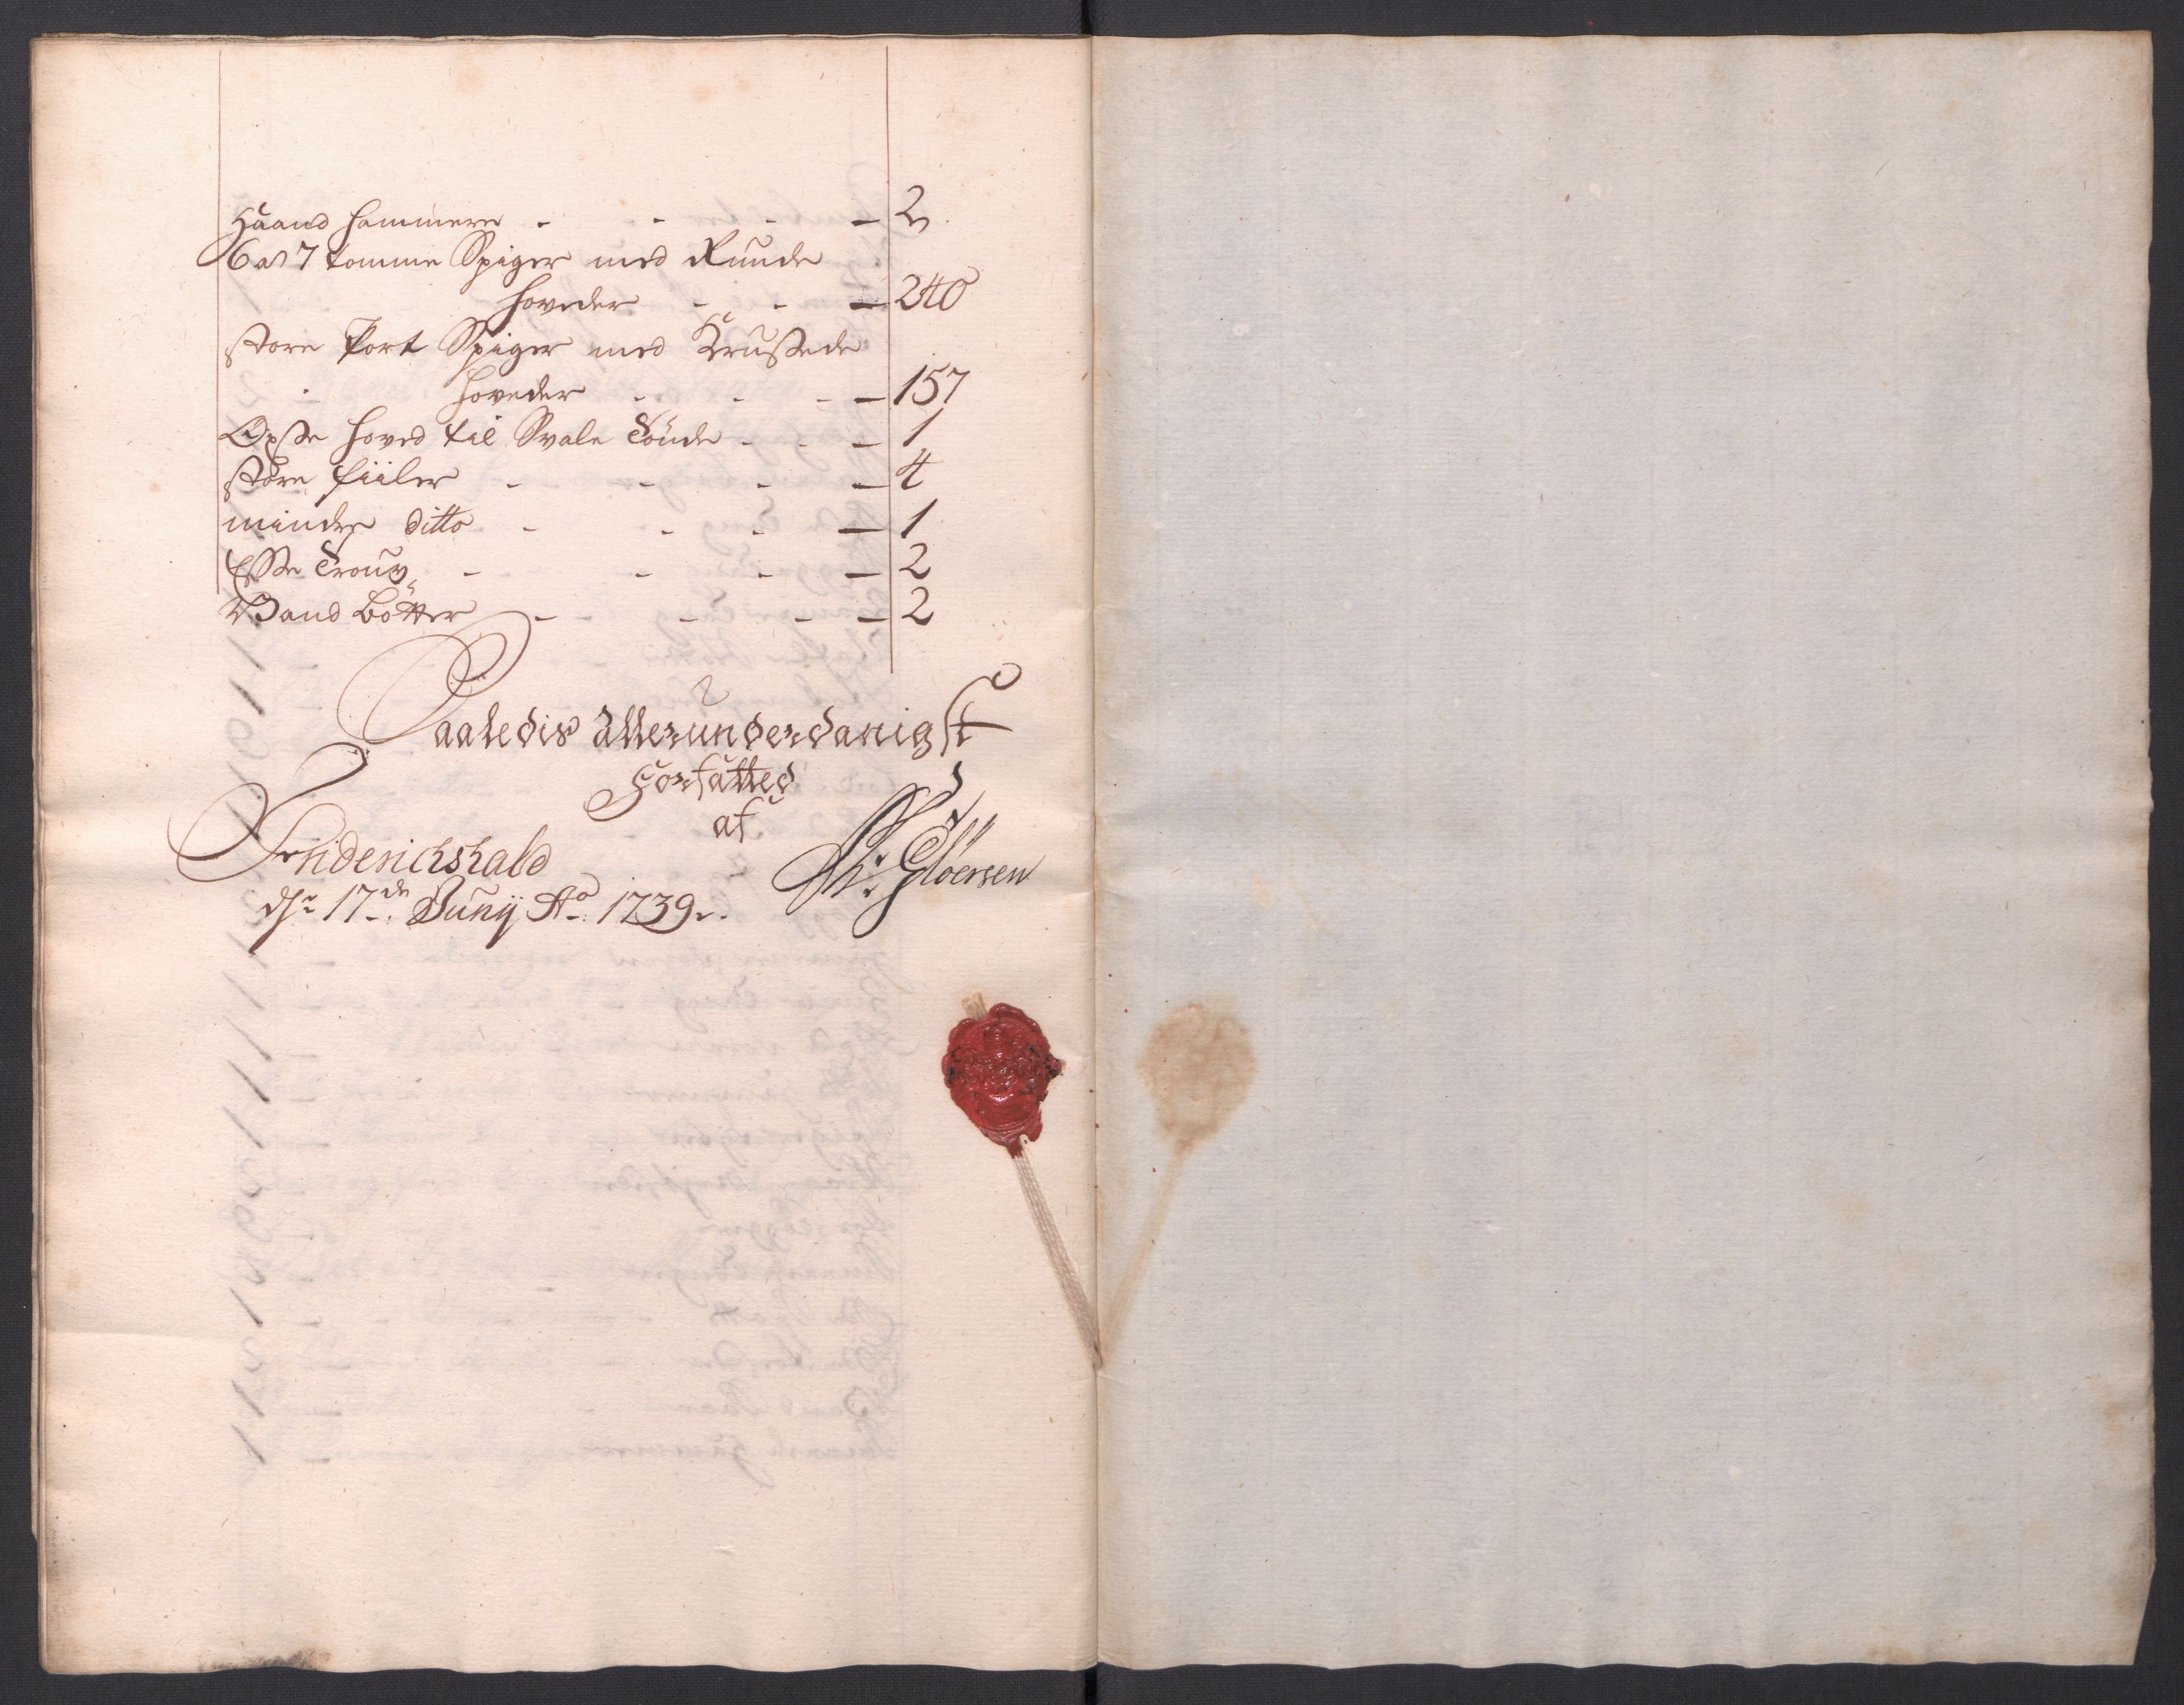 Haand Hammere - - - - 2
6 a 7 tomme Spiger med Runde
Hoveder - - - 240
store Port Spiger med Krussede
Hoveder - - - - 157
Hoved til Svale - - - 1
store fiiler - - - - 4
mindre ditto - - - - 1
Esse - - - - 2
Vand Bötter - - - - - 2
Saaledis allerunderdanigst
Forfatted
af
Friderichshald
d. 17de Junij Ao. 1739.